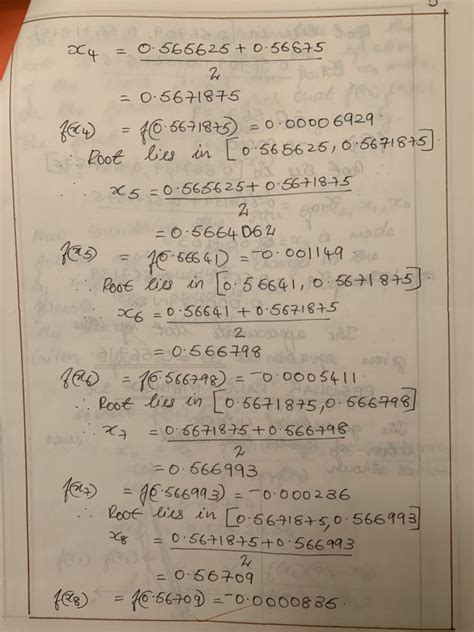 x4 = 0.565625 + 0.56875
2
= 0.5671875
f(x4) = f(0.5671875) = 0.00006929
Root lies in [0.565625, 0.5671875].
∴ x5 = 0.565625 + 0.5671875
2
= 0.5664062
f(x5) = f(0.56641) = -0.001149.
∴ Root lies in [0.56641, 0.5671875].
∴ x6 = 0.56641 + 0.5671875
2
= 0.566798
f(x6) = f(0.566798) = -0.0005411.
∴ Root lies in [0.5671875, 0.566798]
∴ x7 = 0.5671875 + 0.566798
2
= 0.566993
f(x7) = f(0.566993) = -0.000236
∴ Root lies in [0.5671875, 0.566993]
x8 = 0.5671875 + 0.566993
2
= 0.56709
f(x8) = f(0.56709) = -0.0000835.